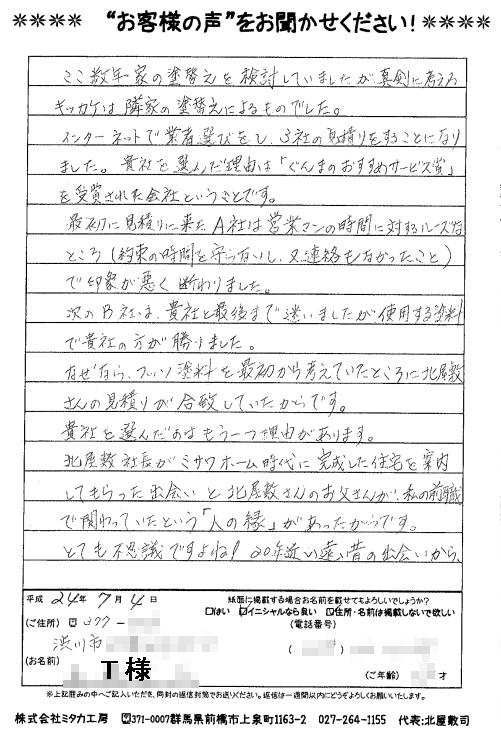 ＊＊＊＊ “お客様の声”をお聞かせください！＊＊＊＊
ここ数年家の塗替えを検討していましたが、真剣に考えろ
キッカケは隣家の塗替えによるものでした。
インターネットで業者選びをし、3社の見積りをすることになり
ました。貴社を選んだ理由は「ぐんまのおすすめサービス賞」
を受賞された会社ということです。
最初に見積りに来たA社は営業マンの時間に対するルーズな
ところ(約束の時間を守らないし、又連絡もなかったこと)
で印象が悪く断わりました。
次のB社は、貴社と最後まで迷いましたが使用する塗料
で貴社の方が勝りました。
なぜなら、フッソ塗料を最初から考えていたところに北屋敷
さんの見積りが合致していたからです。
貴社を選んだのはもう一つ理由があります。
北屋敷社長がミサワホーム時代に完成した住宅を案内
してもらった出会いと北屋敷さんのお父さんが、私の前職
で関わっていたという「人の縁」があったからです。
とても不思議ですよね！20年近い遠い昔の出会いから、
平成 24年 7月 4日
紙面に掲載する場合お名前を載せてもよろしいでしょうか？
□はい ☑イニシャルなら良い □住所・名前は掲載しないで欲しい
(ご住所) 〒377-
(電話番号)
渋川市
( )
(お名前)
T 様
(ご年齢) 才
※上記囲みの中へご記入いただき、同封の返信封筒でお送りください。返信は一週間以内にどうぞよろしくお願いいたします。
株式会社ミタカ工房 〒371-0007群馬県前橋市上泉町1163-2 027-264-1155 代表:北屋敷司